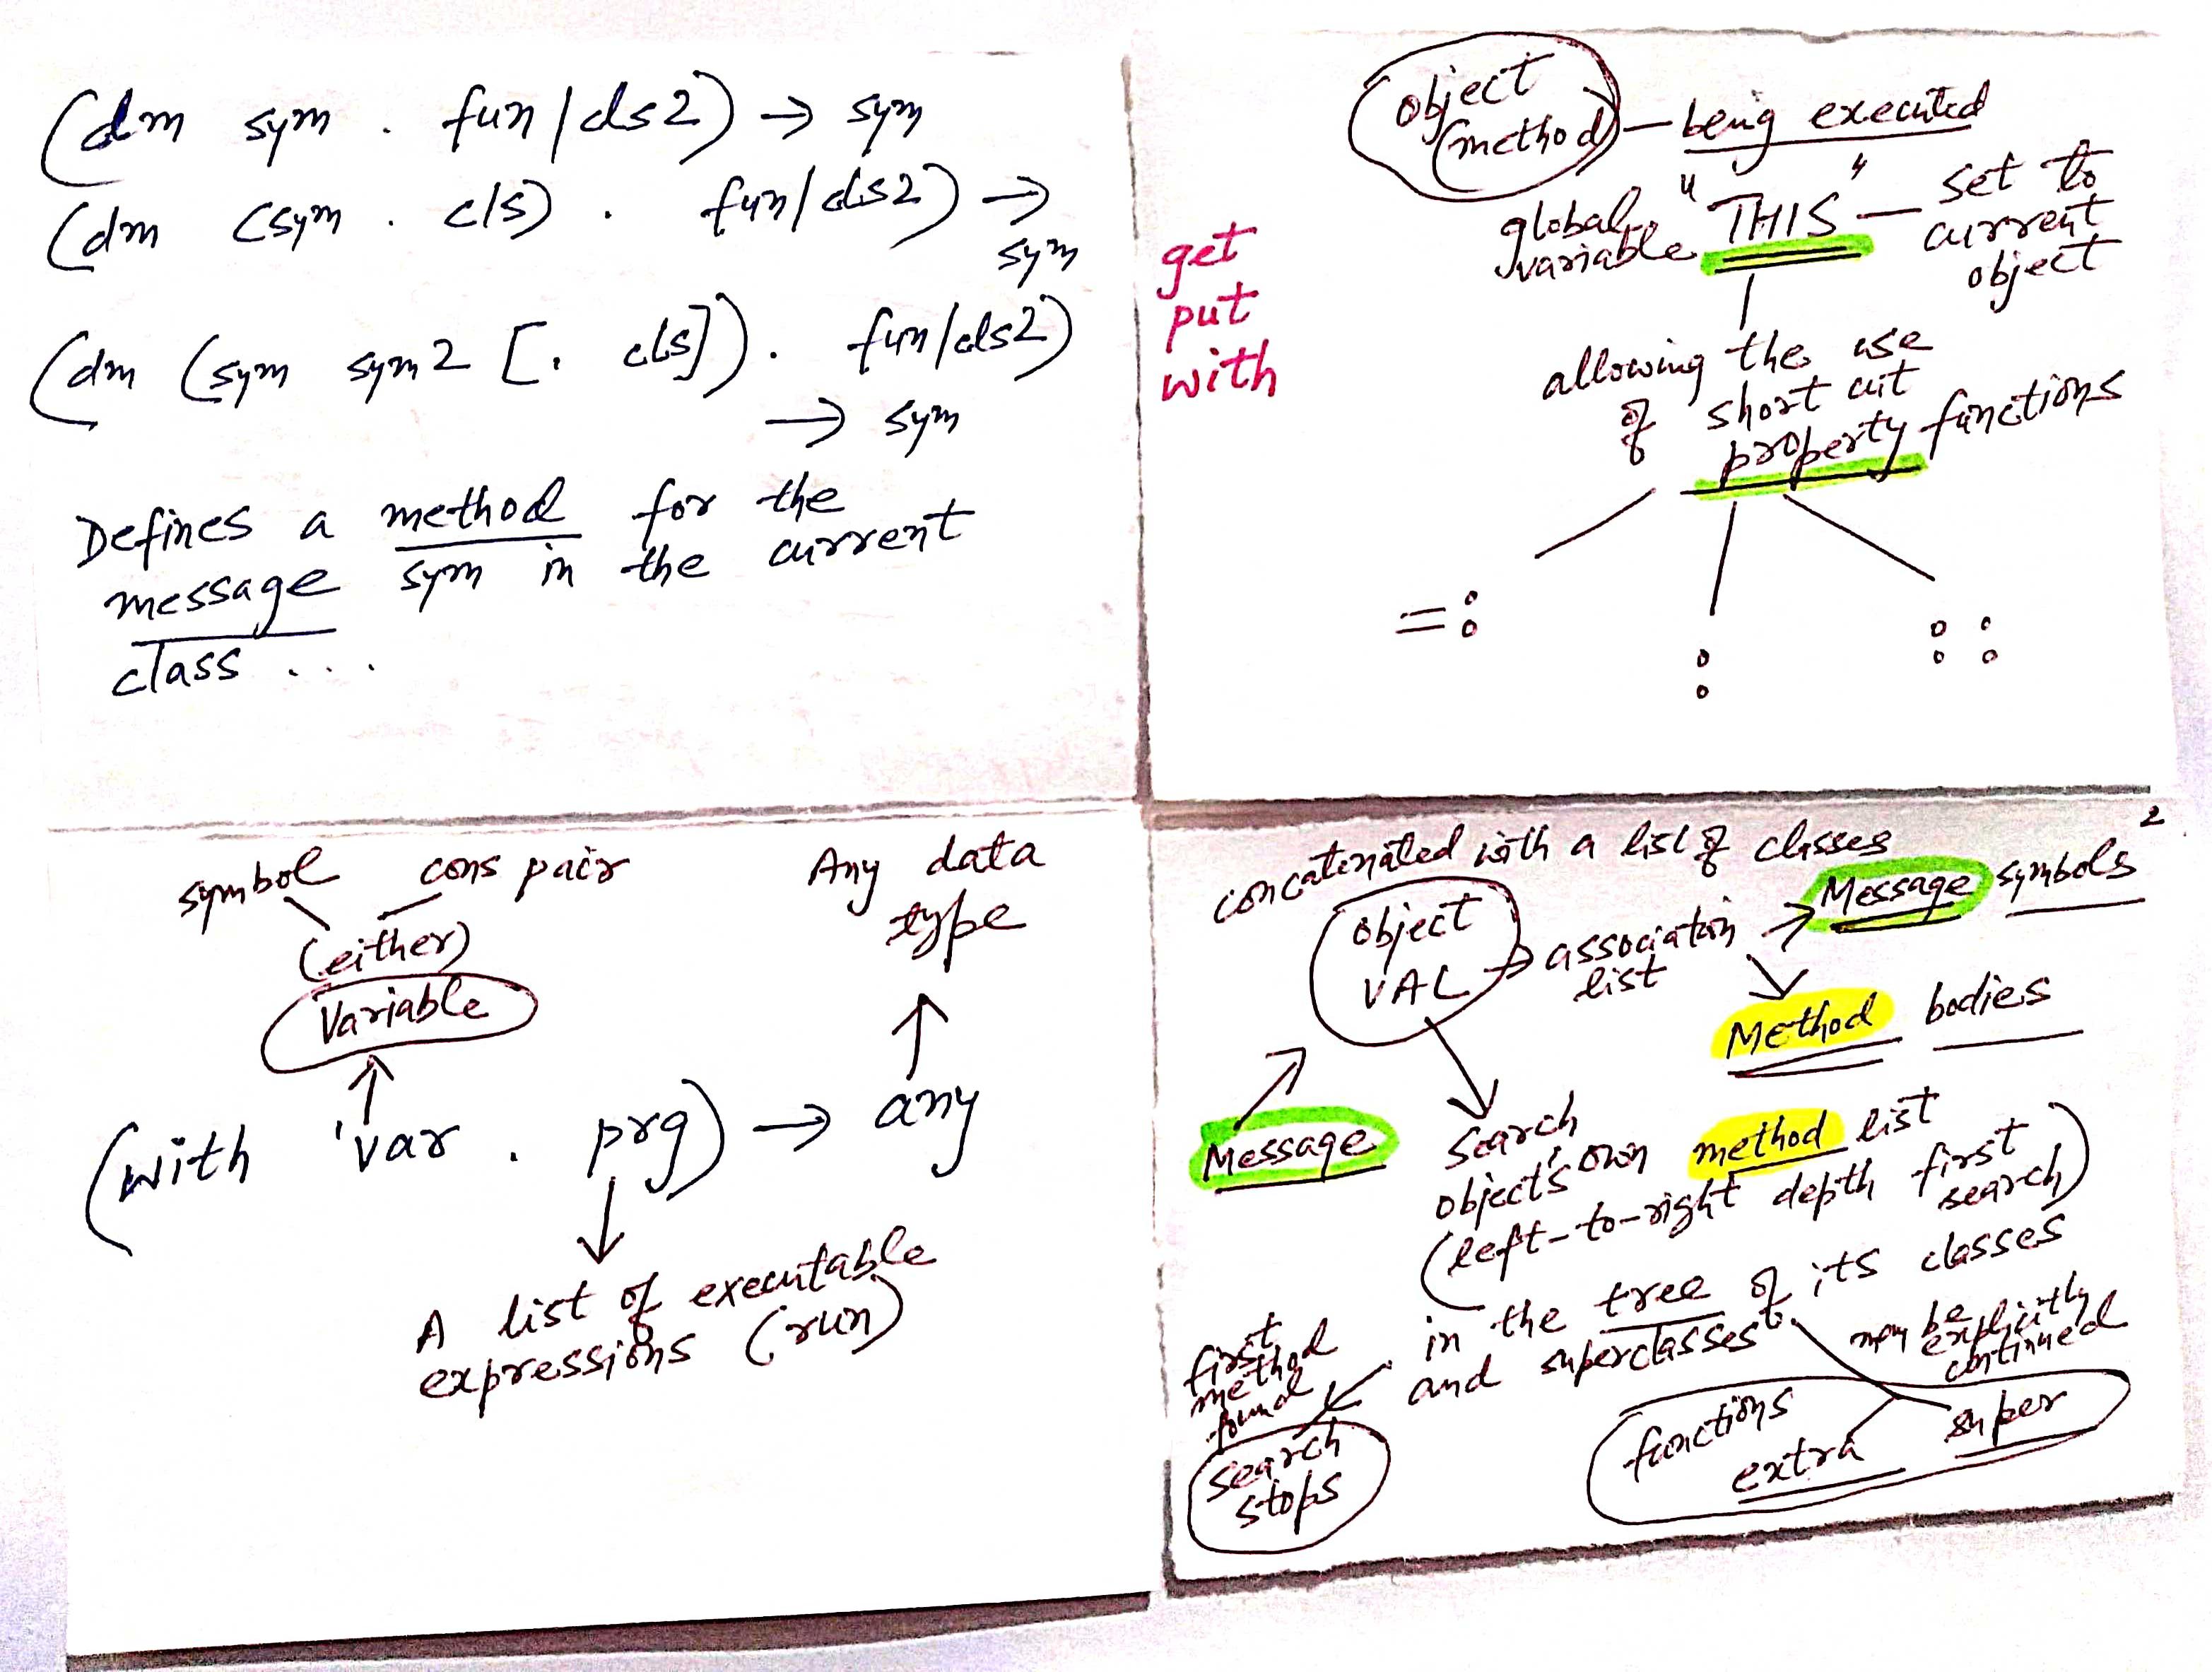 (dm sym . fun/cls2) → sym
(dm (sym . cls) . fun/cls2) →
sym
(dm (sym sym2 [. cls]) . fun/cls2)
→ sym
Defines a method for the
message sym in the current
class ...
object
method — being executed
global variable "THIS" — set to
current
object
get
put
with
allowing the use
of short cut
property functions
=:
:
::
symbol cons pair
(either)
Variable
Any data
type
(with 'var . prg) → any
A list of executable
expressions (run)
2
concatenated with a list of classes
object
VAL → association
list
Message symbols
Method bodies
Message
Search
object's own method list
(left-to-right depth first
search)
in the tree of its classes
and superclasses
may be
explicitly
continued
first
method
found
search
stops
functions
extra super